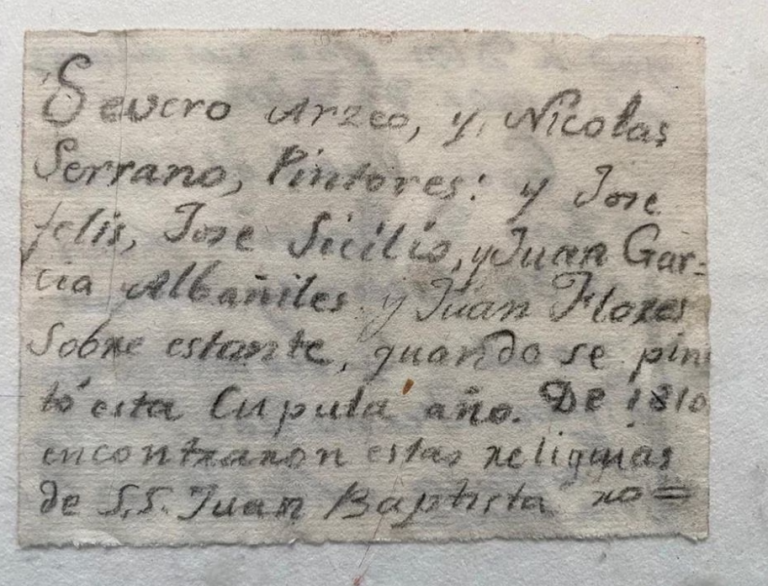 Severo Arzeo, y, Nicolas
Serrano, Pintores: y Jose
felis, Jose Sicilio, y Juan Gar=
cia Albañiles y Juan Flores
Sobre estante, quando se pin
tó esta Cupula año. De 1810
encontraron estas reliquias
de S,S. Juan Baptista